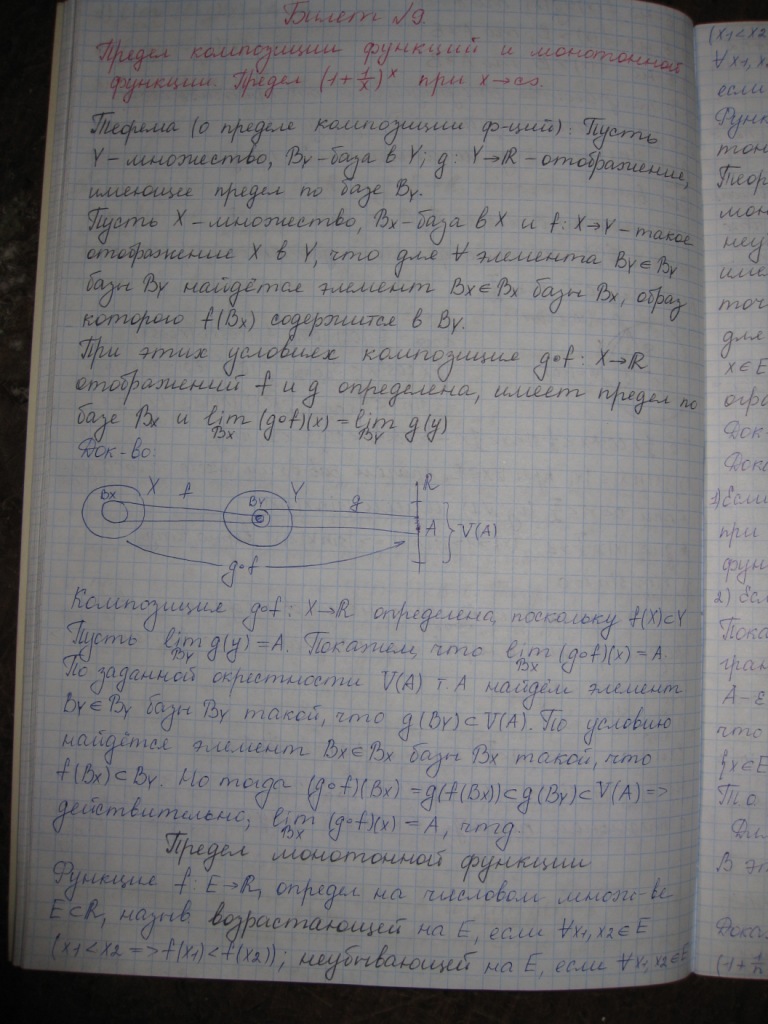 Билет №9.
Предел композиции функций и монотонной
функции. Предел (1+1/x)^x при x→∞.
Теорема (о пределе композиции ф-ций): Пусть
Y – множество, By – база в Y; g: Y→R – отображение,
имеющее предел по базе By.
Пусть X – множество, Bx – база в X и f: X→Y – такое
отображение X в Y, что для ∀ элемента By∈By
базы By найдётся элемент Bx∈Bx базы Bx, образ
которого f(Bx) содержится в By.
При этих условиях композиция g∘f: X→R
отображений f и g определена, имеет предел по
базе Bx и lim (g∘f)(x) = lim g(y)
Bx By
Док-во:
Bx X f By Y g R
A } V(A)
g∘f
Композиция g∘f: X→R определена, поскольку f(X)⊂Y
Пусть lim g(y) = A. Покажем, что lim (g∘f)(x) = A.
By Bx
По заданной окрестности V(A) т. A найдём элемент
By∈By базы By такой, что g(By)⊂V(A). По условию
найдётся элемент Bx∈Bx базы Bx такой, что
f(Bx)⊂By. Но тогда (g∘f)(Bx) = g(f(Bx))⊂g(By)⊂V(A) =>
действительно, lim (g∘f)(x) = A, чтд.
Bx
Предел монотонной функции
Функция f: E→R, определ на числовом множ-ве
E⊂R, назыв возрастающей на E, если ∀x1,x2∈E
(x1<x2 => f(x1)<f(x2)); неубывающей на E, если ∀x1,x2∈E
(x1<x2
∀x1,x2
если
Функ
тон
Теор
мон
неу
име
точ
для
x∈E
огра
Док-
Дока
1) Если
при
функ
2) Если
Пока
гран
A-ε
что
{x∈E
То
Дл
В эт
Доказ
(1+1/n